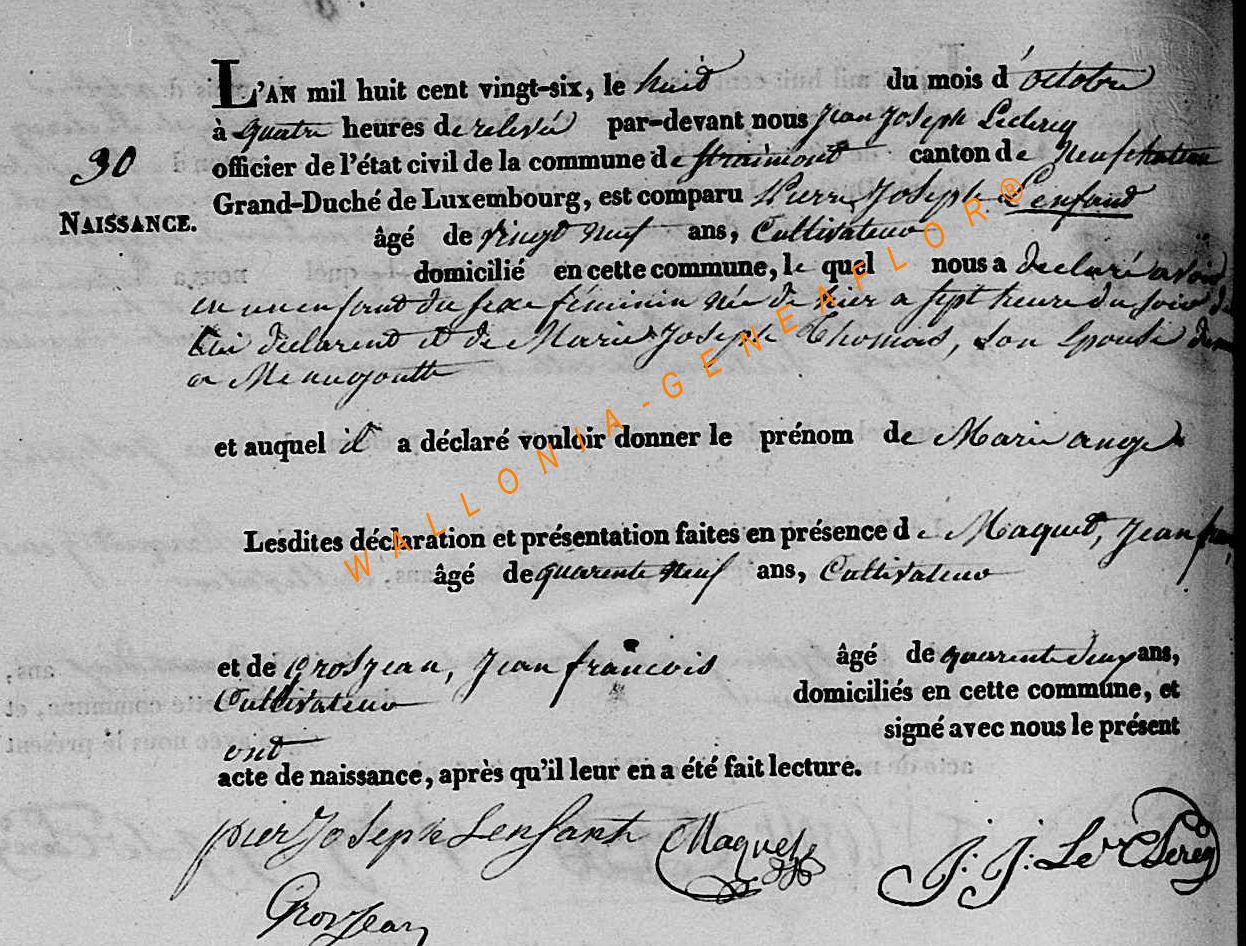 L'AN mil huit cent vingt-six, le huid du mois d'octobre
à quatre heures de relevée par-devant nous Jean Joseph Leclercq
officier de l'état civil de la commune de straimont canton de Neufchateau
30
Grand-Duché de Luxembourg, est comparu Pierre Joseph Lenfand
NAISSANCE.
âgé de vingt neuf ans, Cultivateur
domicilié en cette commune, le quel nous a declaré avoir
eu un enfant du sexe féminin née de hier a sept heure du soir de
lui declarent et de Marie Joseph Thomas, son Epouse
a Menugoutte
et auquel il a déclaré vouloir donner le prénom de Marie ange
Lesdites déclaration et présentation faites en présence de Maquet, Jean fran
âgé de quarente neuf ans, Cultivateur
et de grosjean, Jean francois âgé de quarente deux ans,
Cultivateur domiciliés en cette commune, et
ont signé avec nous le présent
acte de naissance, après qu'il leur en a été fait lecture.
pier Joseph Lenfant Maquet J: J: Le Clercq
Grosjean
WALLONIA-GENEAFLOR®